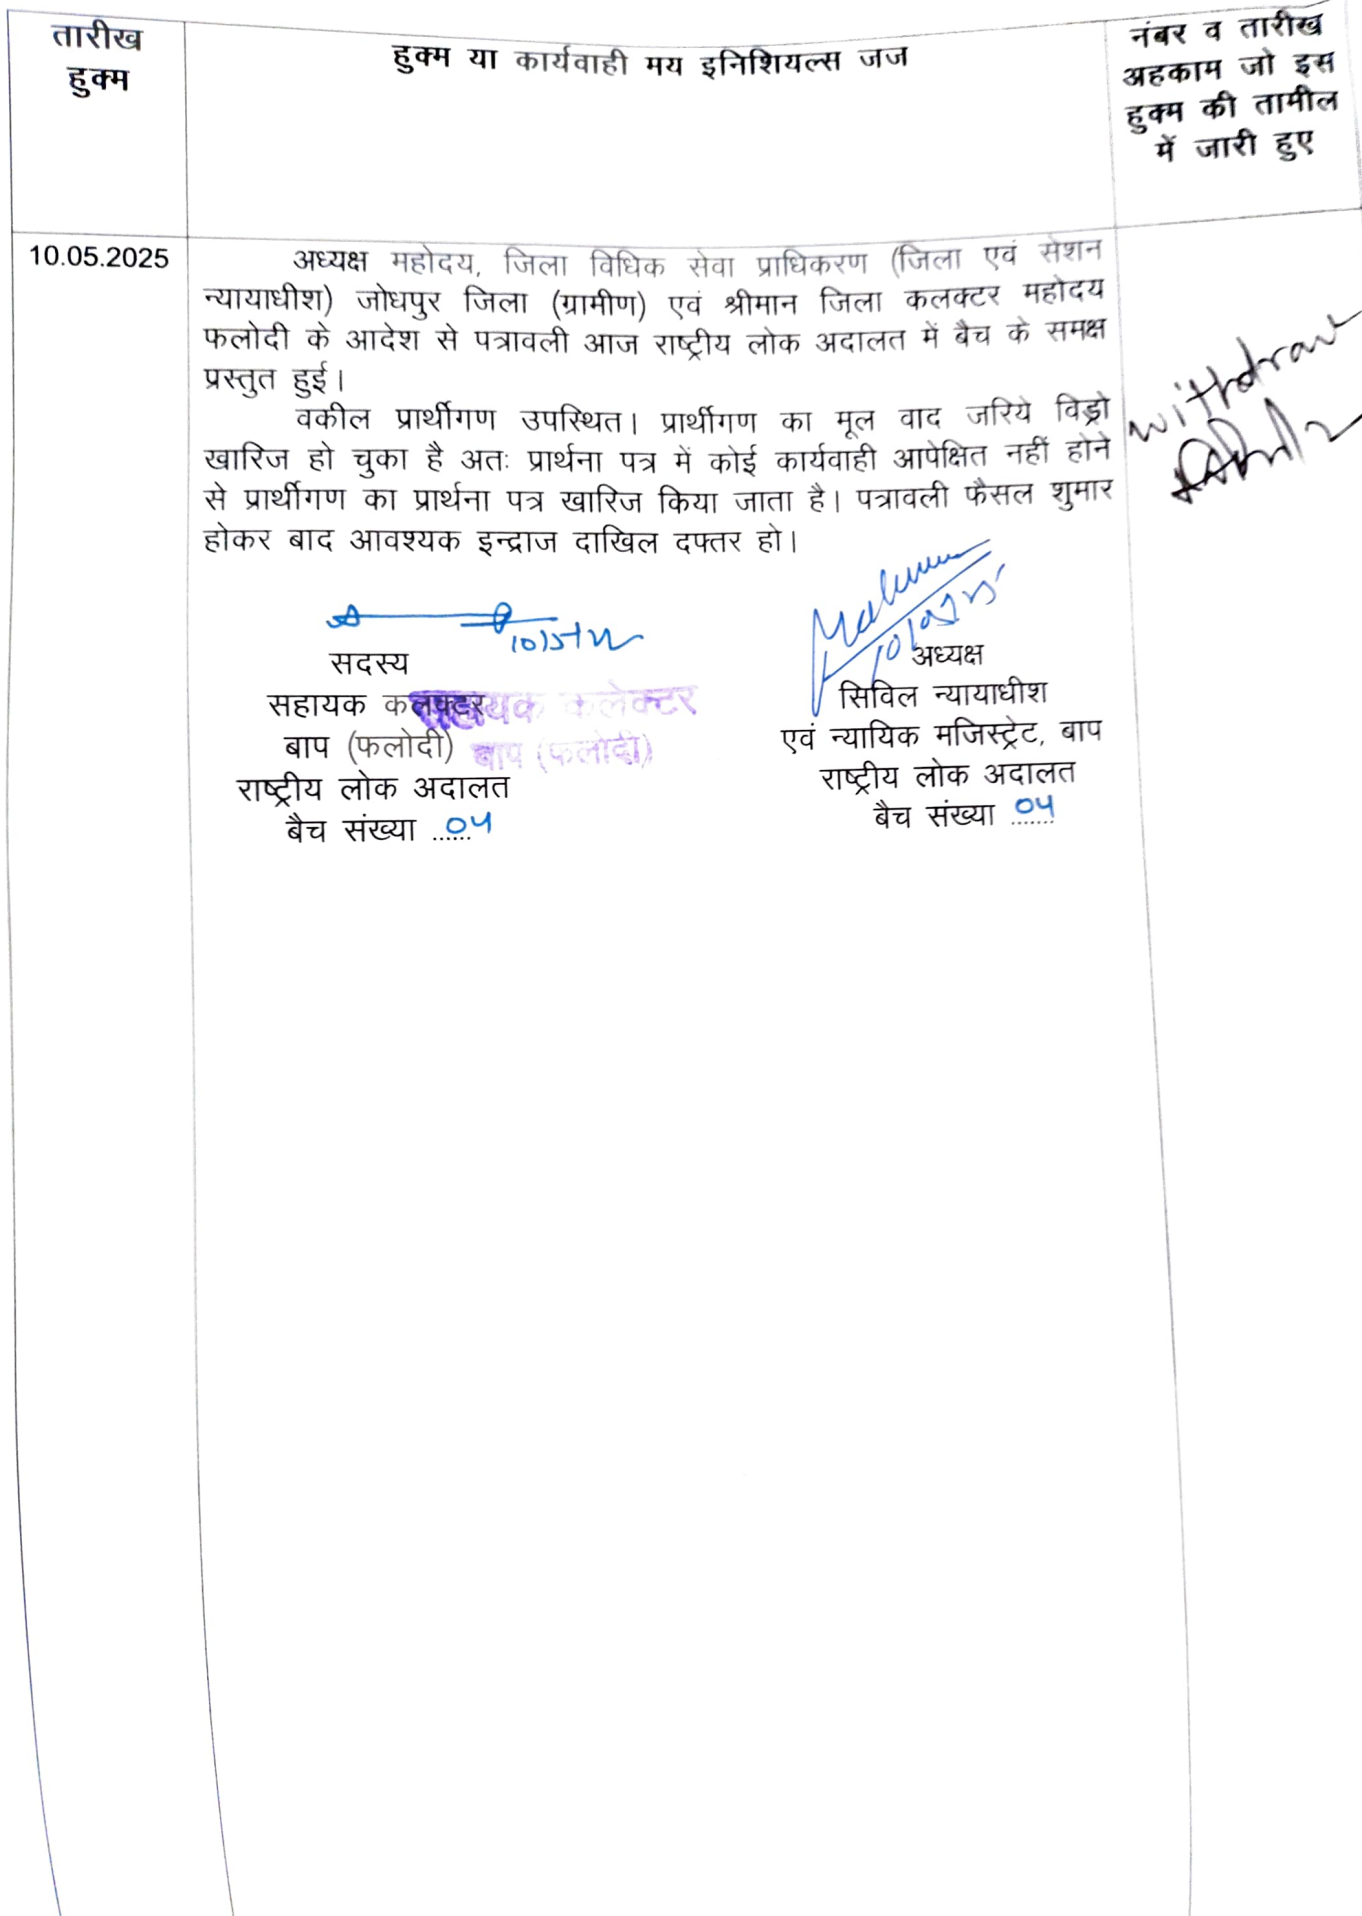 तारीख
हुक्म
हुक्म या कार्यवाही मय इनिशियल्स जज
नंबर व तारीख
अहकाम जो इस
हुक्म की तामील
में जारी हुए
10.05.2025
अध्यक्ष महोदय, जिला विधिक सेवा प्राधिकरण (जिला एवं सेशन
न्यायाधीश) जोधपुर जिला (ग्रामीण) एवं श्रीमान जिला कलक्टर महोदय
फलोदी के आदेश से पत्रावली आज राष्ट्रीय लोक अदालत में बैच के समक्ष
प्रस्तुत हुई।
वकील प्रार्थीगण उपस्थित। प्रार्थीगण का मूल वाद जरिये विड्रो
खारिज हो चुका है अतः प्रार्थना पत्र में कोई कार्यवाही आपेक्षित नहीं होने
से प्रार्थीगण का प्रार्थना पत्र खारिज किया जाता है। पत्रावली फैसल शुमार
होकर बाद आवश्यक इन्द्राज दाखिल दफ्तर हो।
withdraw
सदस्य
सहायक कलक्टर
बाप (फलोदी)
राष्ट्रीय लोक अदालत
बैच संख्या ......04
सहायक कलेक्टर
बाप (फलोदी)
अध्यक्ष
सिविल न्यायाधीश
एवं न्यायिक मजिस्ट्रेट, बाप
राष्ट्रीय लोक अदालत
बैच संख्या ......04